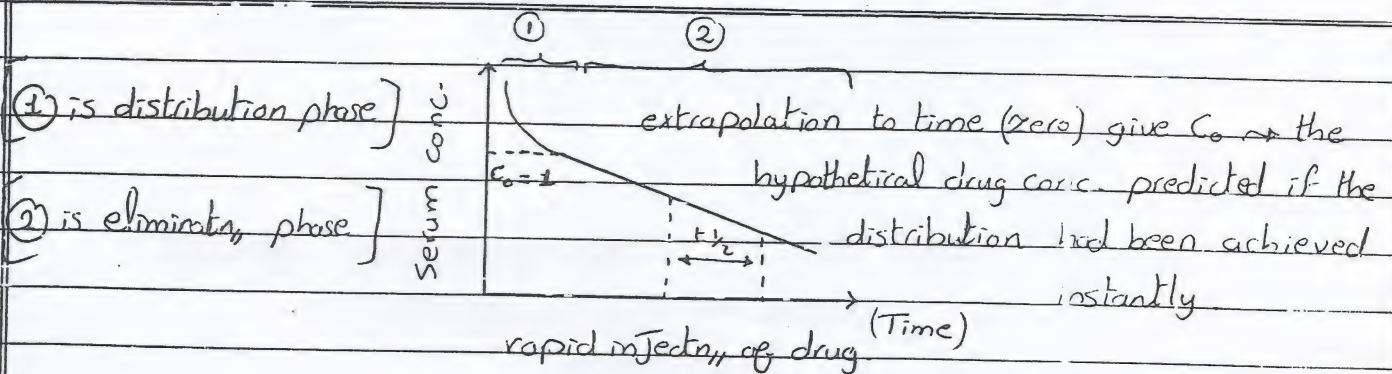 ① ②
① is distribution phase]
② is eliminatn,, phase]
Serum conc.
C₀ = 1
t½
(Time)
extrapolation to time (zero) give C₀ → the
hypothetical drug conc. predicted if the
distribution had been achieved
instantly
rapid injectn,, of drug